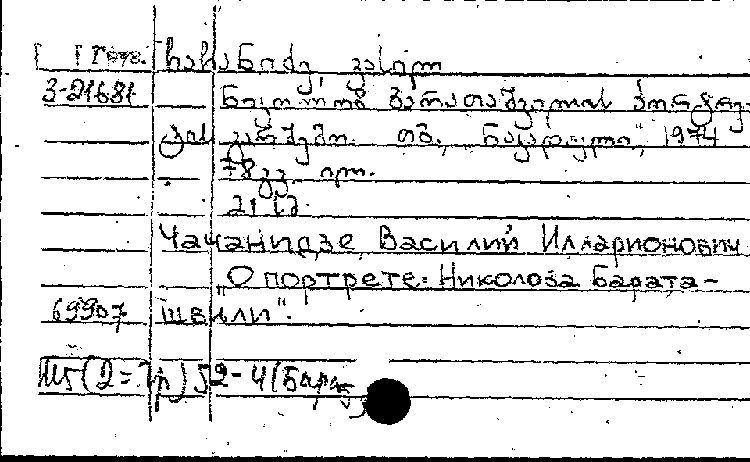 Груз. ჩაჩანიძე, ვასილ
3-21681 ნიკოლოზ ბარათაშვილის პორტრე-
ტის გარშემო. თბ., „ნაკადული", 1974
78 გვ. ილ.
Чачанидзе, Василий Илларионович
„О портрете Николоза Барата-
69907 швили".